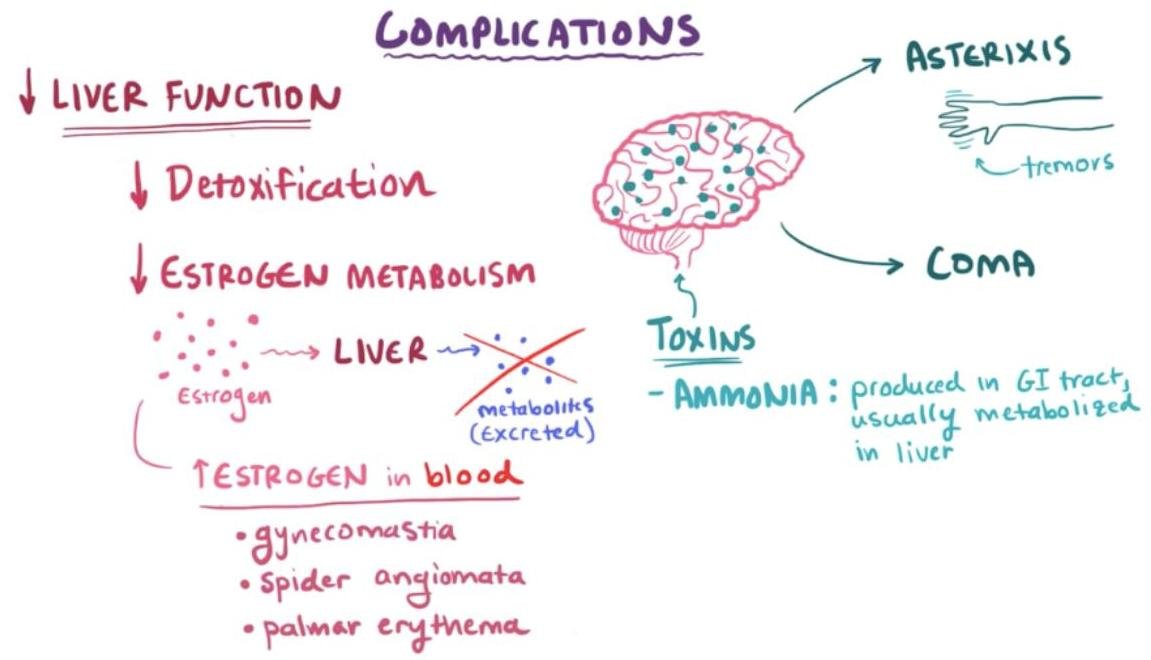 COMPLICATIONS
↓ LIVER FUNCTION
↓ Detoxification
↓ ESTROGEN METABOLISM
Estrogen
LIVER
metabolites
(Excreted)
↑ ESTROGEN in blood
• gynecomastia
• spider angiomata
• palmar erythema
ASTERIXIS
tremors
COMA
TOXINS
- AMMONIA : produced in GI tract,
usually metabolized
in liver